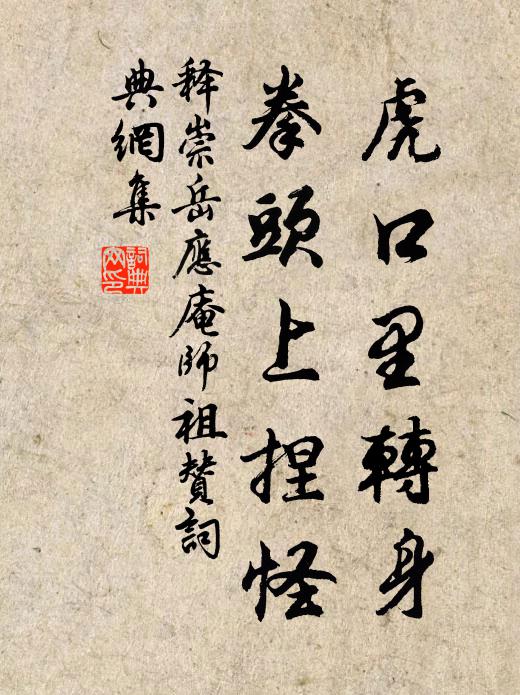 虎口里轉身
拳頭上捏怪
释崇岳應庵師祖贊詞
典網集
詞典
网印